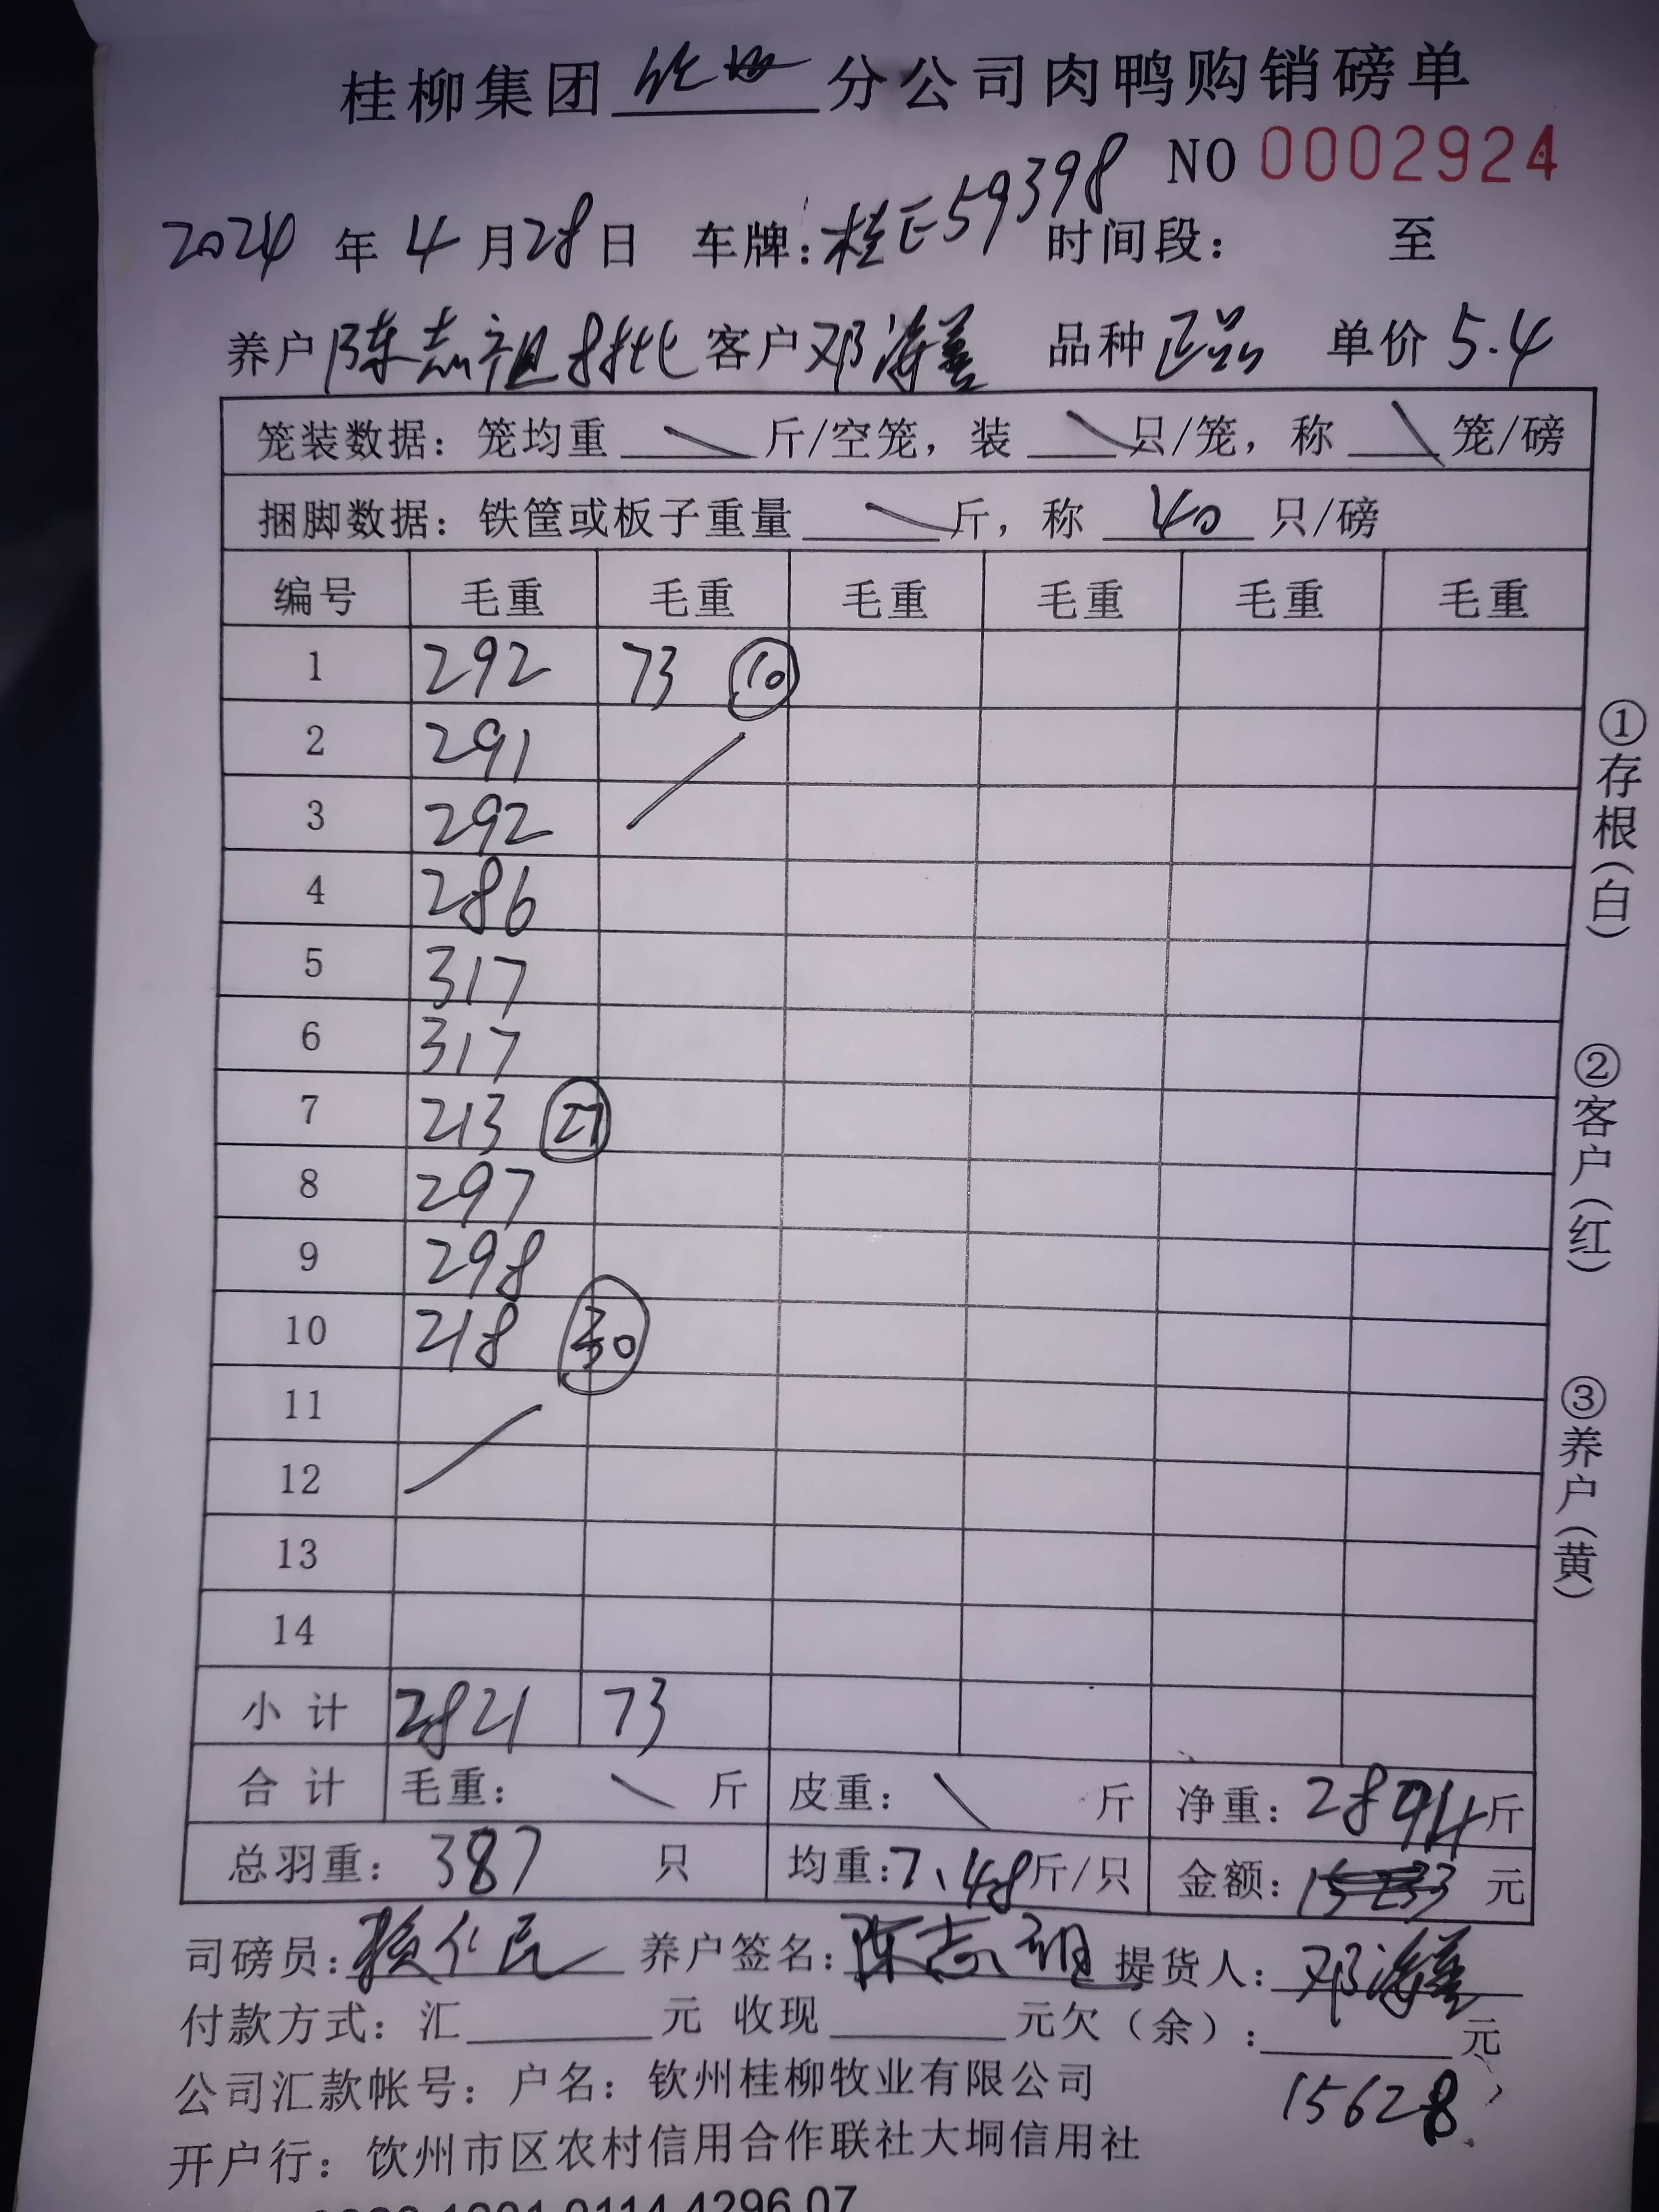 桂柳集团 钦州 分公司肉鸭购销磅单
NO 0002924
2024 年 4 月 28 日 车牌: 桂E59398 时间段: 至
养户 陈志祖 批 客户 邓海善 品种 正品 单价 5.4
笼装数据: 笼均重 斤/空笼, 装 只/笼, 称 笼/磅
捆脚数据: 铁筐或板子重量 斤, 称 40 只/磅
编号 毛重 毛重 毛重 毛重 毛重 毛重
1 292 73 10
2 291
3 292
4 286
5 317
6 317
7 213 27
8 297
9 298
10 218 30
11
12
13
14
小 计 2821 73
合 计 毛重: 斤 皮重: 斤 净重: 2894 斤
总羽重: 387 只 均重: 7.48 斤/只 金额: 元
司磅员: 养户签名: 陈志祖 提货人: 邓海善
付款方式: 汇 元 收现 元欠(余): 元
15628
公司汇款帐号: 户名: 钦州桂柳牧业有限公司
开户行: 钦州市区农村信用合作联社大垌信用社
①存根(白)
②客户(红)
③养户(黄)